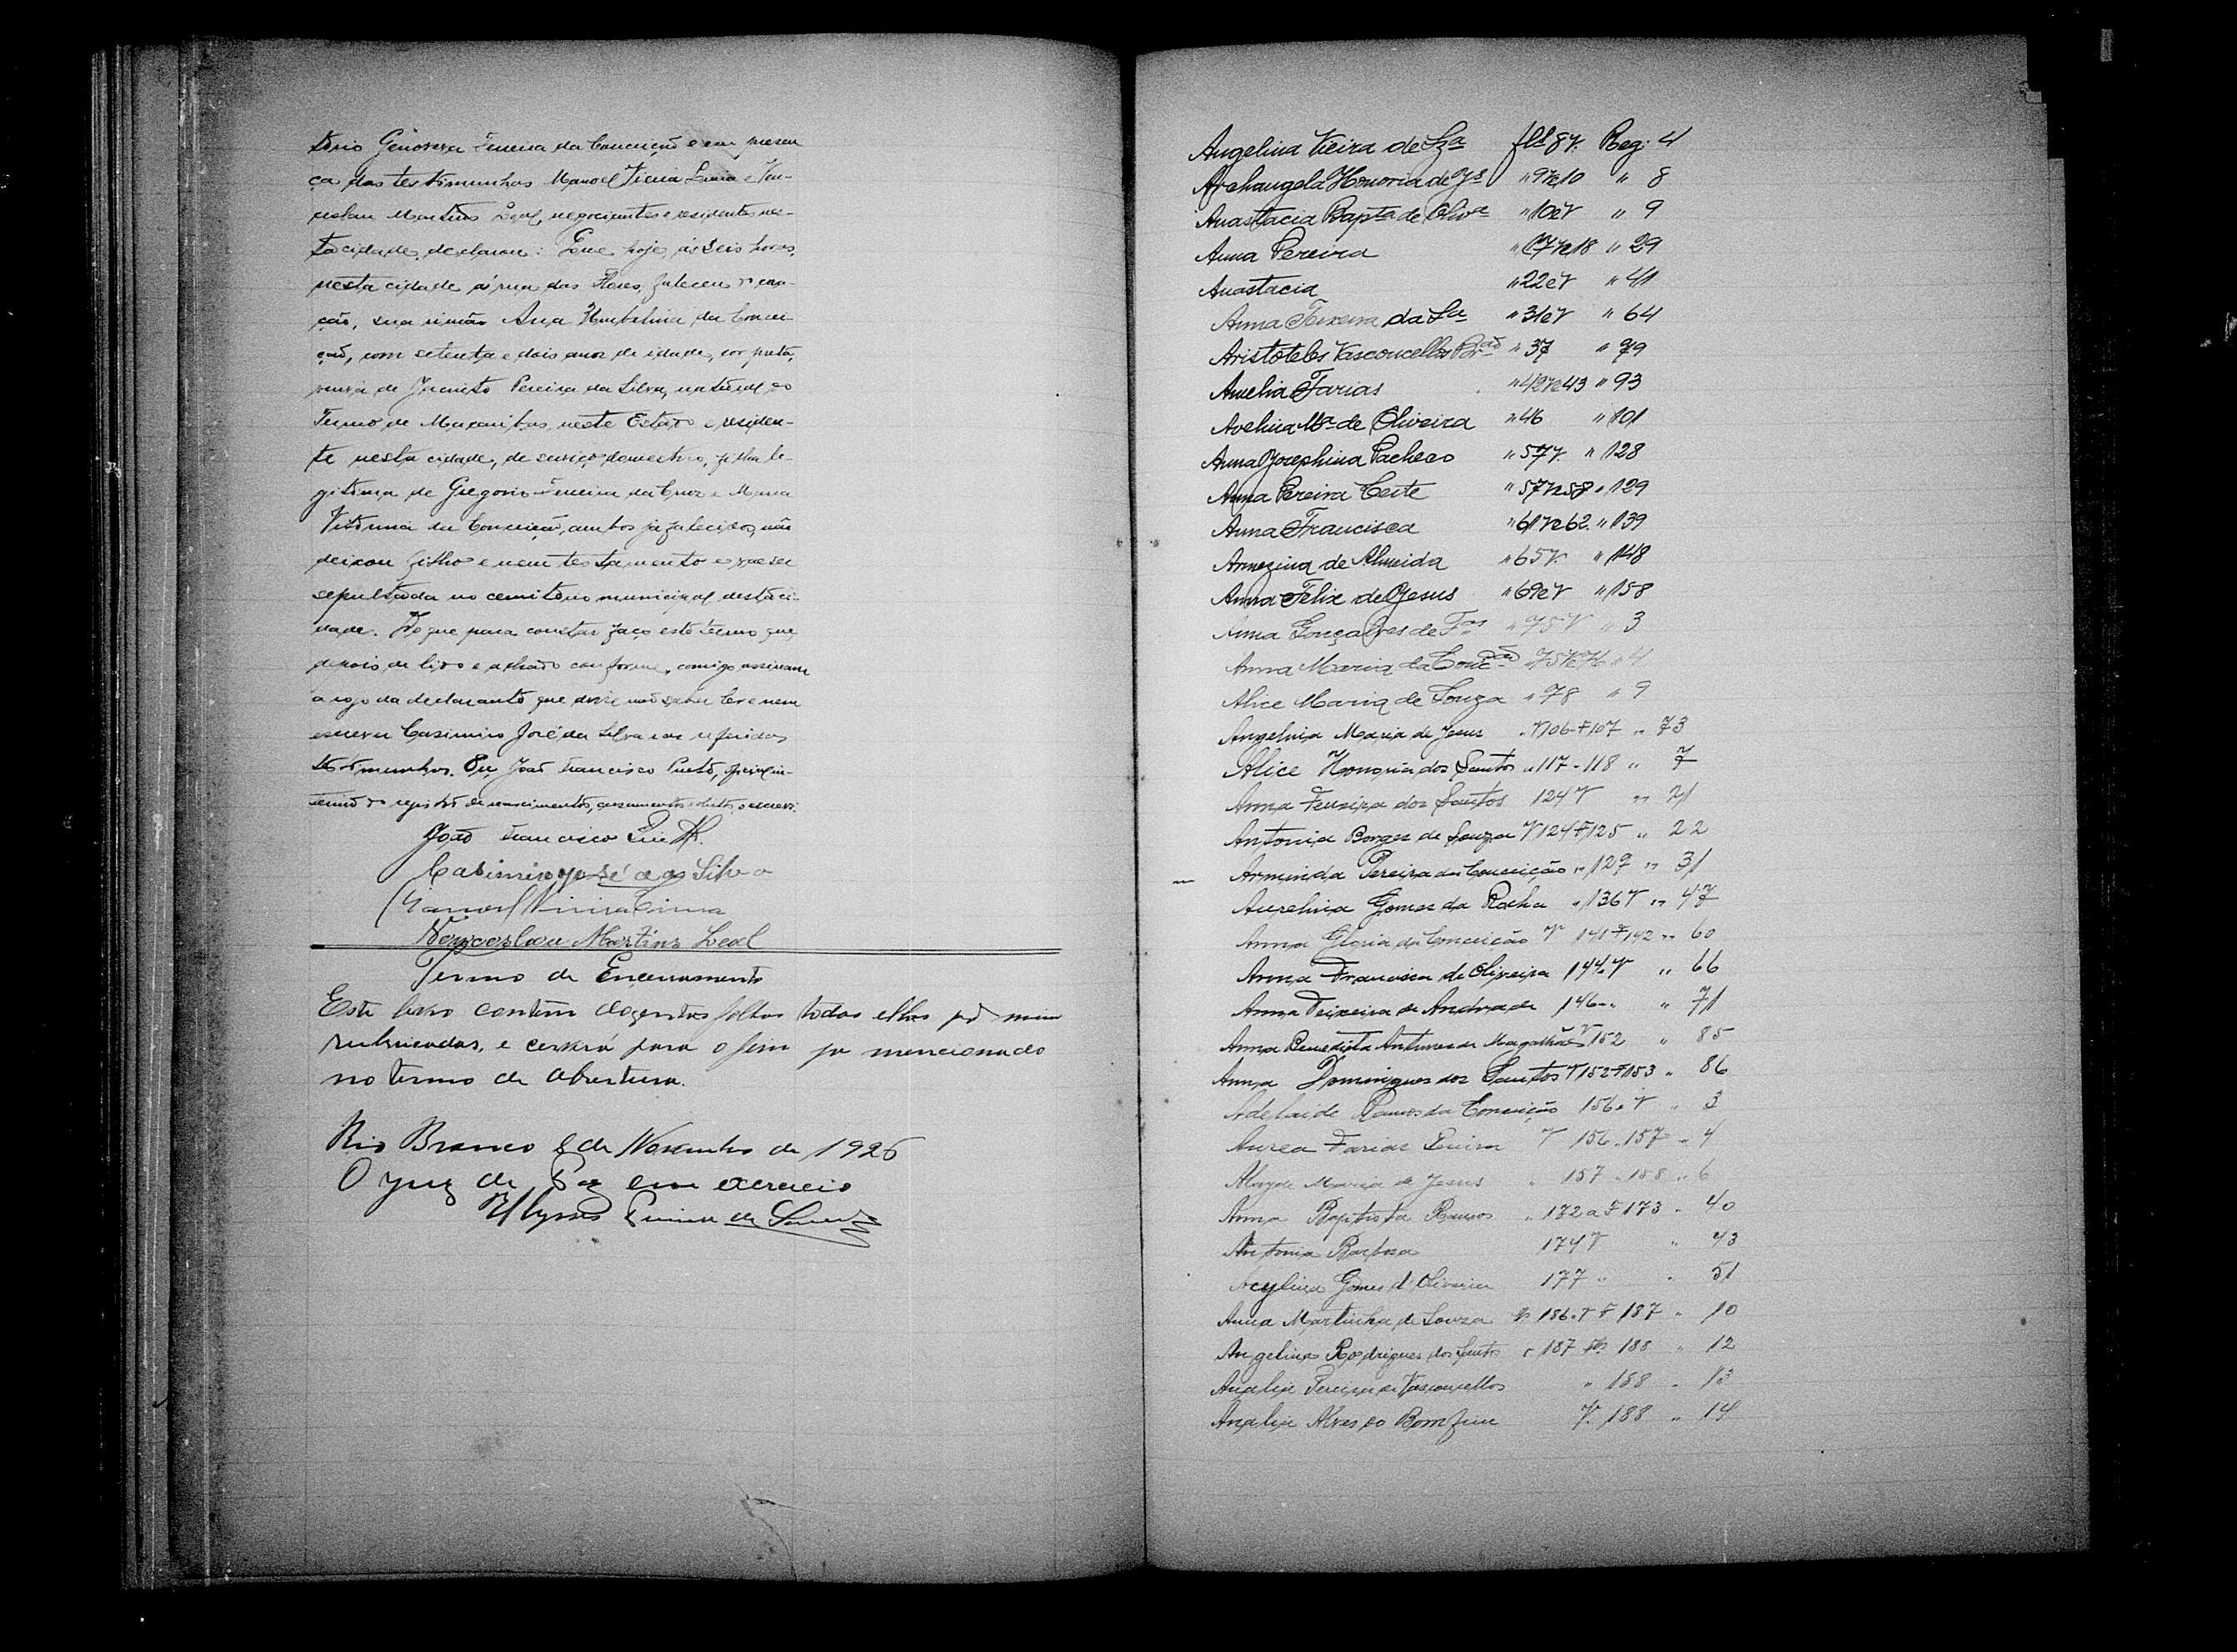 torio Genoveva Ferreira da Conceição e em presen
ça das testimunhas Manoel Vieira Lima e Ven-
ceslau Martins Leal, negociantes e residentes nes-
ta cidade, declarou: Que hoje, ás seis horas,
nesta cidade á rua das Flores, falleceu do cora-
ção, sua irmão Anna Umbelina da Concei-
ção, com setenta e dois annos de idade, cor preta,
viuva de Jacinto Pereira da Silva, natural do
Termo de Macaúbas, neste Estado e residen-
te nesta cidade, de serviço domestico, filha le-
gitima de Gregorio Ferreira da Cruz e Maria
da Conceição, ambos já falecidos, não
deixou filho e nem testamento e vae ser
sepultada no cemiterio municipal desta ci-
dade. Do que para constar faço este termo que
depois de lido e achado conforme, comigo assinam
a rogo da declarante que disse não saber ler e nem
escrever Casimiro José da Silva e as referidas
testimunhas. Eu João Francisco official in-
terino do registro de nascimentos, casamentos e obitos, o escrevi.
João Francisco
Casimiro José da Silva
Manoel Vieira Lima
Venceslau Martins Leal
Termo de Encerramento
Este livro contem dozentas folhas todas ellas por mim
rubricadas, e cerrará para o fim ja mencionado
no termo de abertura.
Rio Branco 8 de Novembro de 1926
O juiz de Paz em exercicio
Ulysses
Angelina Vieira de Sza fls 8v. Reg: 4
Archangela Honoria de Js " 9v e 10 " 8
Anastacia Bapta de Olivª " 10 e v " 9
Anna Pereira " 17v e 18 " 29
Anastacia " 22 e v " 41
Anna Teixeira da Sª " 31 e v " 64
Aristoteles Vasconcellos " 37 " 79
Amelia Farias " 42v e 43 " 93
Avelina Mª de Oliveira " 46 " 101
Anna Josephina Pacheco " 57v. " 128
Anna Pereira Leite " 57v e 58 " 129
Anna Francisca " 61v e 62. " 139
Armezina de Almeida " 65v. " 148
Anna Felix de Jesus " 69 e v " 158
Anna Gonçalves de " 75v " 3
Anna Maria da Concão " 75v e 76 " 4
Alice Maria de Souza " 78 " 9
Angelina Maria de Jesus " V106 F107 " 73
Alice Honoria dos Santos " 117 - 118 " 7
Anna Ferreira dos Santos 124 V " 21
Antonia Borges de Souza V124 F125 " 22
Arminda Pereira da Conceição " 127 " 31
Aurelina Gomes da Rocha " 136 V " 47
Anna Gloria da Conceição V 141 F 142 " 60
Anna Francisca de Oliveira 144 V " 66
Anna Teixeira de Andrade 146 " " 71
Anna Benedicta Antunes de Magalhães V152 " 85
Anna Domingues dos Santos V152 F153 " 86
Adelaide Ramos da Conceição 156 V " 3
Aurea Farias V 156 - 157 " 4
Maria de Jesus " 157 - 158 " 6
Anna Baptista Ramos " 172 a F 173 " 40
Antonia Barbosa 174 V " 43
Acylina Gomes d'Oliveira 177 " " 51
Anna Martinha de Souza 186 V F 187 " 10
Angelina Rodrigues dos Santos 187 188 " 12
Analia Pereira de Vasconcellos " 188 " 13
Analia Alves do Bomfim V. 188 " 14